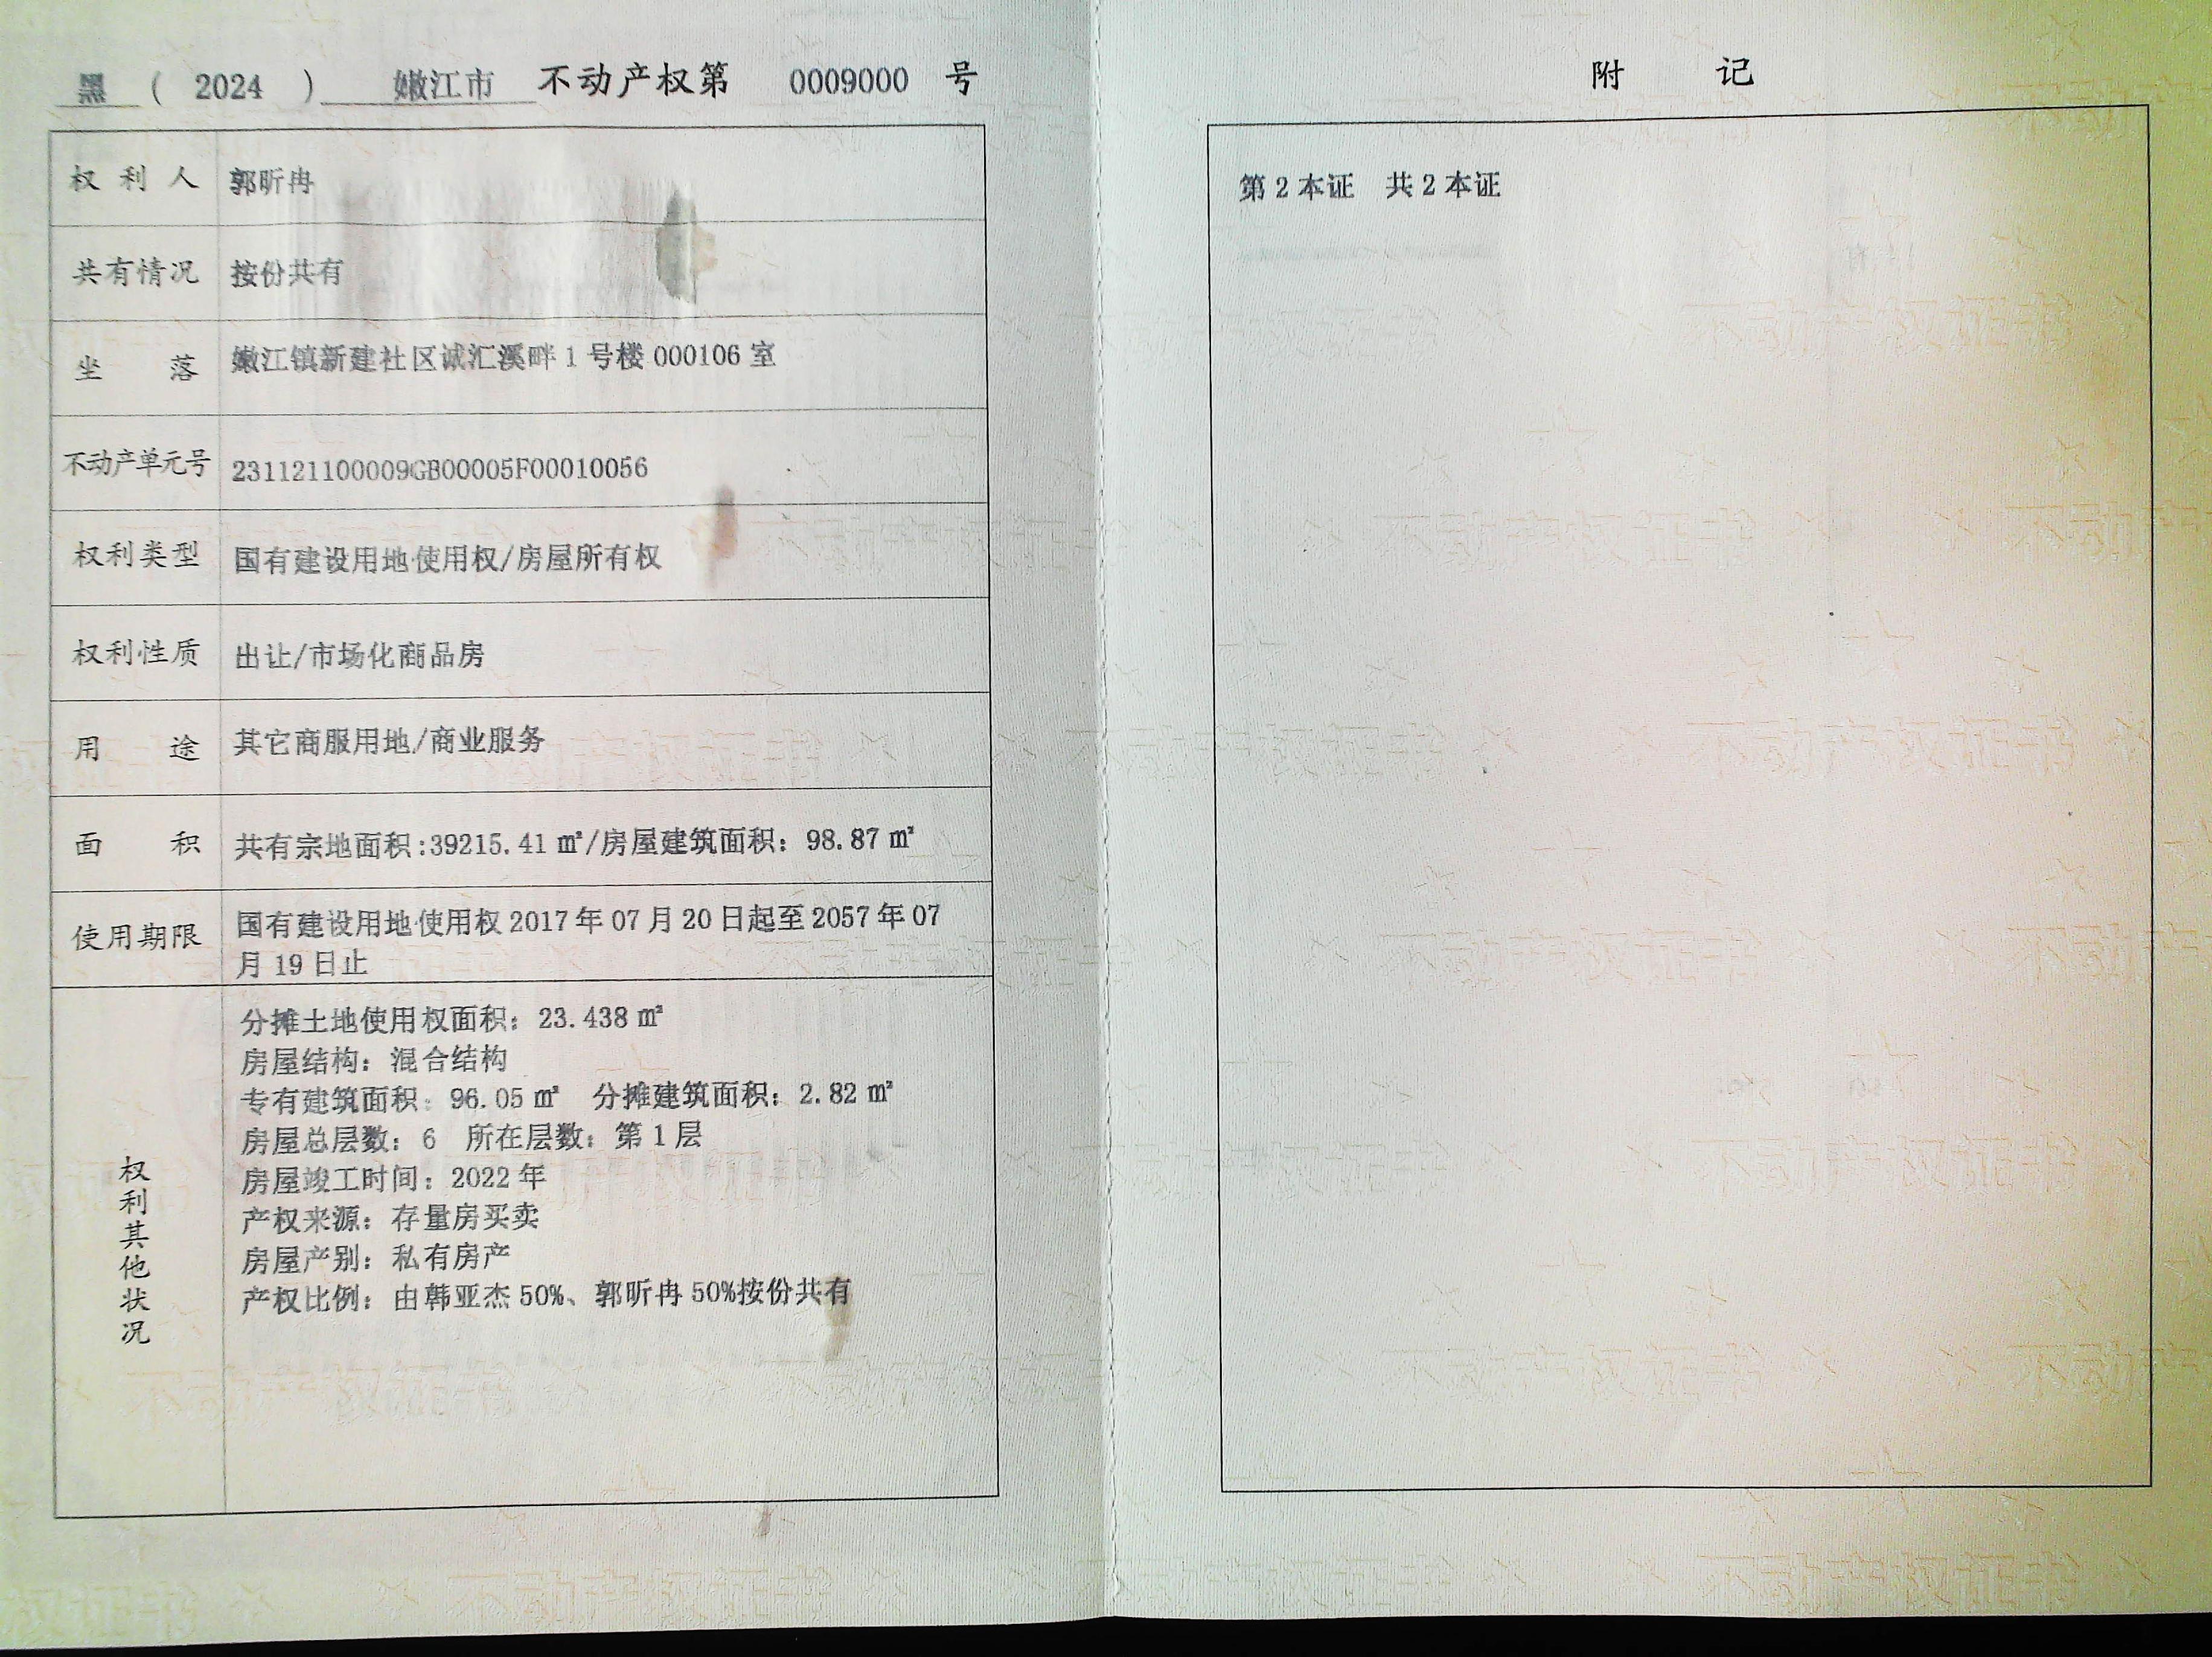 黑 （ 2024 ） 嫩江市 不动产权第 0009000 号
权利人 郭昕冉
共有情况 按份共有
坐落 嫩江镇新建社区诚汇溪畔1号楼000106室
不动产单元号 231121100009GB00005F00010056
权利类型 国有建设用地使用权/房屋所有权
权利性质 出让/市场化商品房
用途 其它商服用地/商业服务
面积 共有宗地面积:39215.41㎡/房屋建筑面积：98.87㎡
使用期限 国有建设用地使用权2017年07月20日起至2057年07
月19日止
权利其他状况
分摊土地使用权面积：23.438㎡
房屋结构：混合结构
专有建筑面积：96.05㎡ 分摊建筑面积：2.82㎡
房屋总层数：6 所在层数：第1层
房屋竣工时间：2022年
产权来源：存量房买卖
房屋产别：私有房产
产权比例：由韩亚杰50%、郭昕冉50%按份共有
附 记
第2本证 共2本证